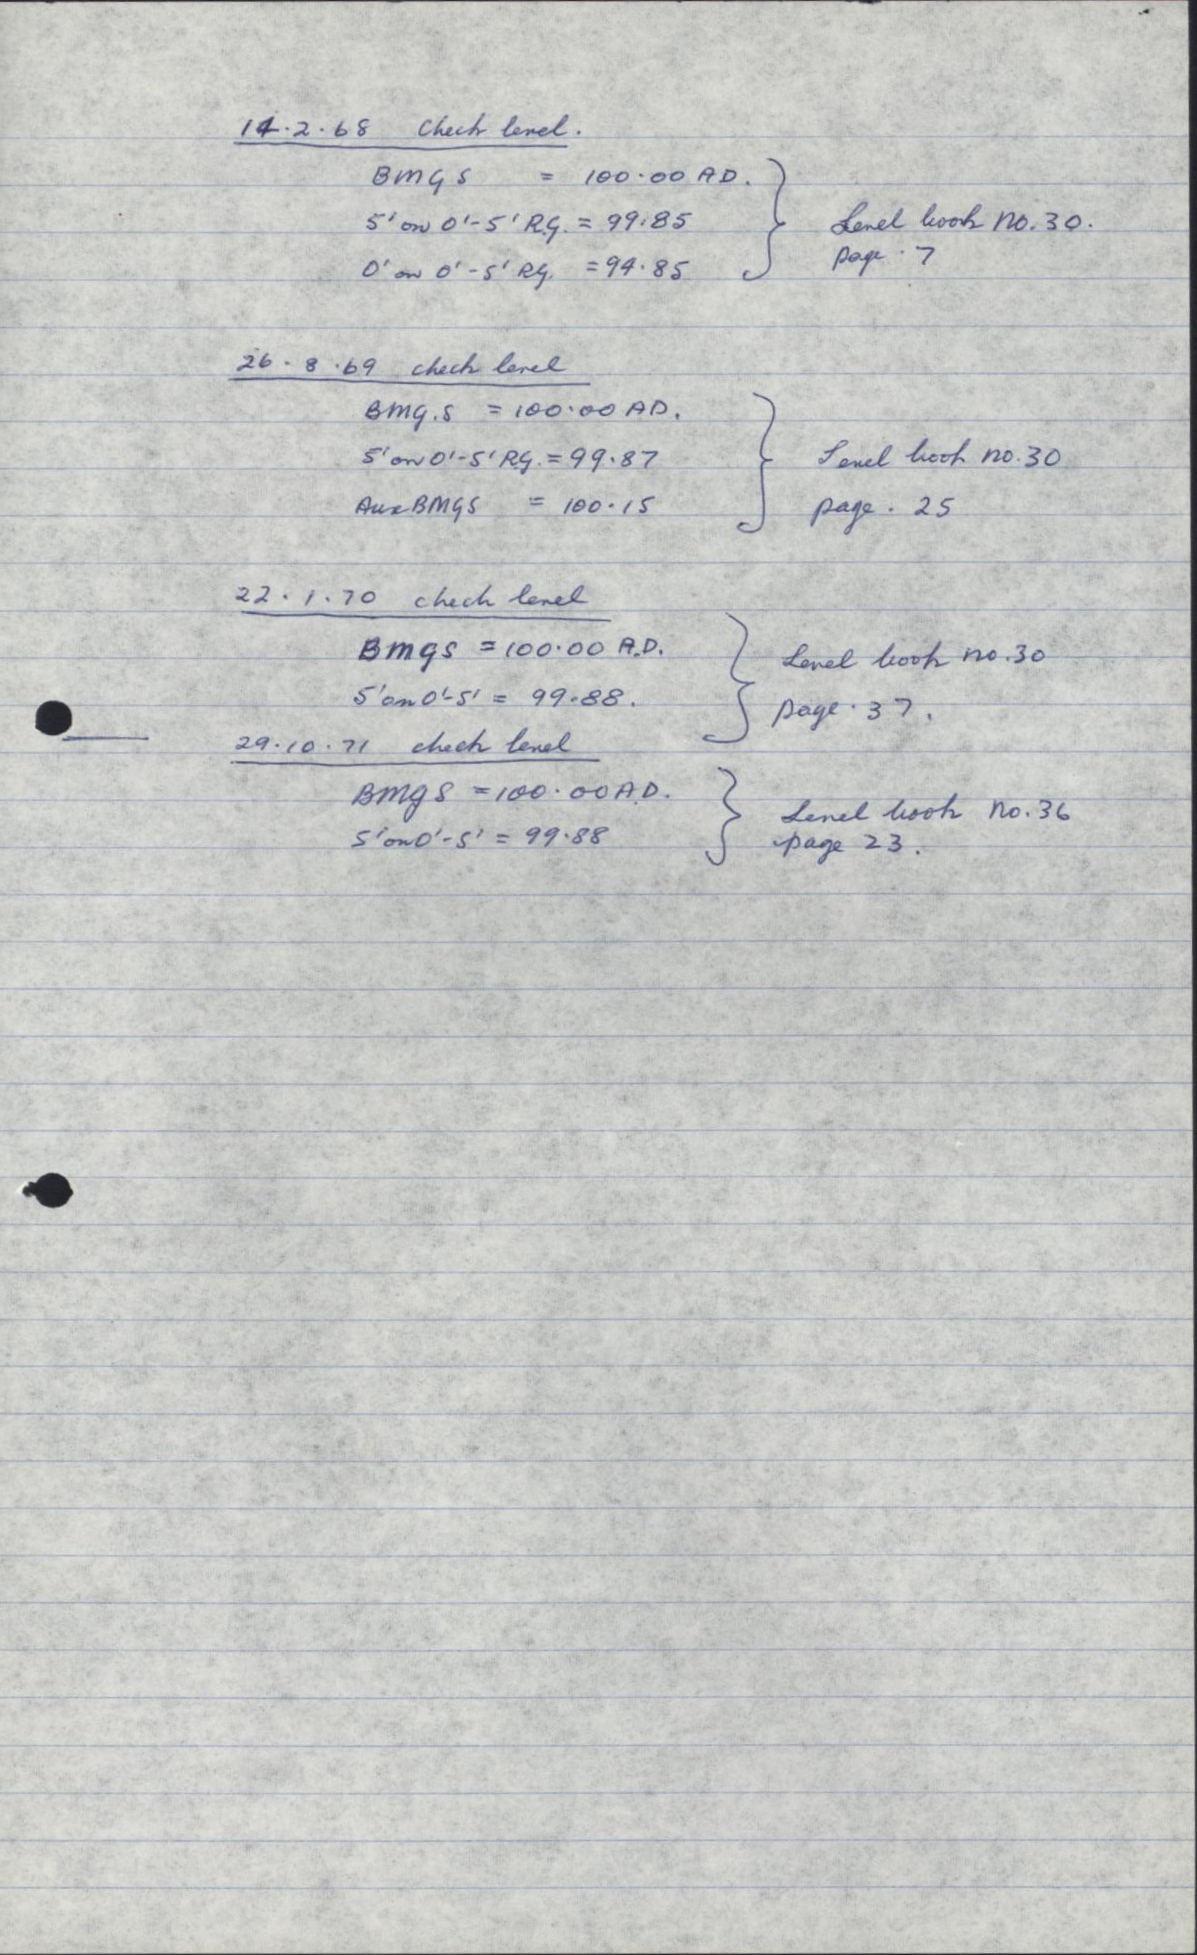 14.2.68 Check level.
BMGS = 100.00 AD.
5' on 0'-5' RG. = 99.85
0' on 0'-5' RG. = 94.85
Level book no.30.
page.7
26.8.69 check level
BMG.S = 100.00 AD.
5' on 0'-5' RG. = 99.87
Aux BMGS = 100.15
Level book no.30
page. 25
22.1.70 check level
BMGS = 100.00 A.D.
5' on 0'-5' = 99.88.
Level book no.30
page.37.
29.10.71 check level
BMGS = 100.00 A.D.
5' on 0'-5' = 99.88
Level book no.36
page 23.